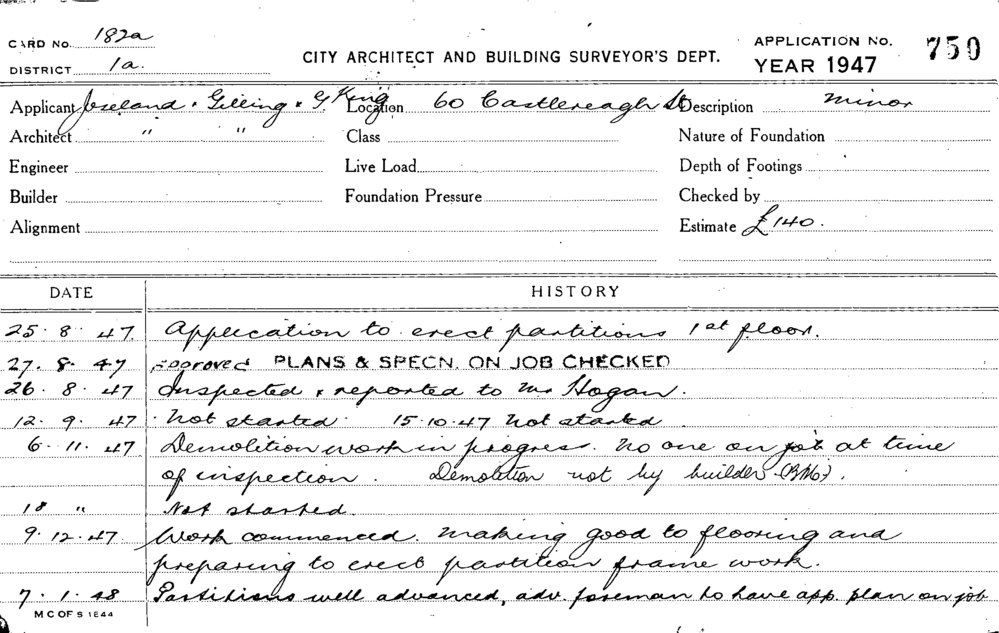 CARD No. 182a
DISTRICT 1a.
CITY ARCHITECT AND BUILDING SURVEYOR'S DEPT.
APPLICATION No. 750
YEAR 1947
Applicant Joseland & Gilling & G King Location 60 Castlereagh St Description minor
Architect " " Class Nature of Foundation
Engineer Live Load Depth of Footings
Builder Foundation Pressure Checked by
Alignment Estimate £140.
DATE HISTORY
25 . 8 . 47. Application to erect partitions 1st floor.
27. 8. 47 approved PLANS & SPECN. ON JOB CHECKED
26 . 8 . 47 Inspected & reported to Mr Hogan.
12 . 9 . 47 Not started 15.10.47 Not started
6 . 11 . 47 Demolition work in progress. No one on job at time
of inspection . Demolition not by builder
18 " Not started.
9.12.47. Work commenced. Making good to flooring and
preparing to erect partition frame work.
7 . 1 . 48 Partitions well advanced, adv. foreman to have app. plan on job
M C OF S 1844